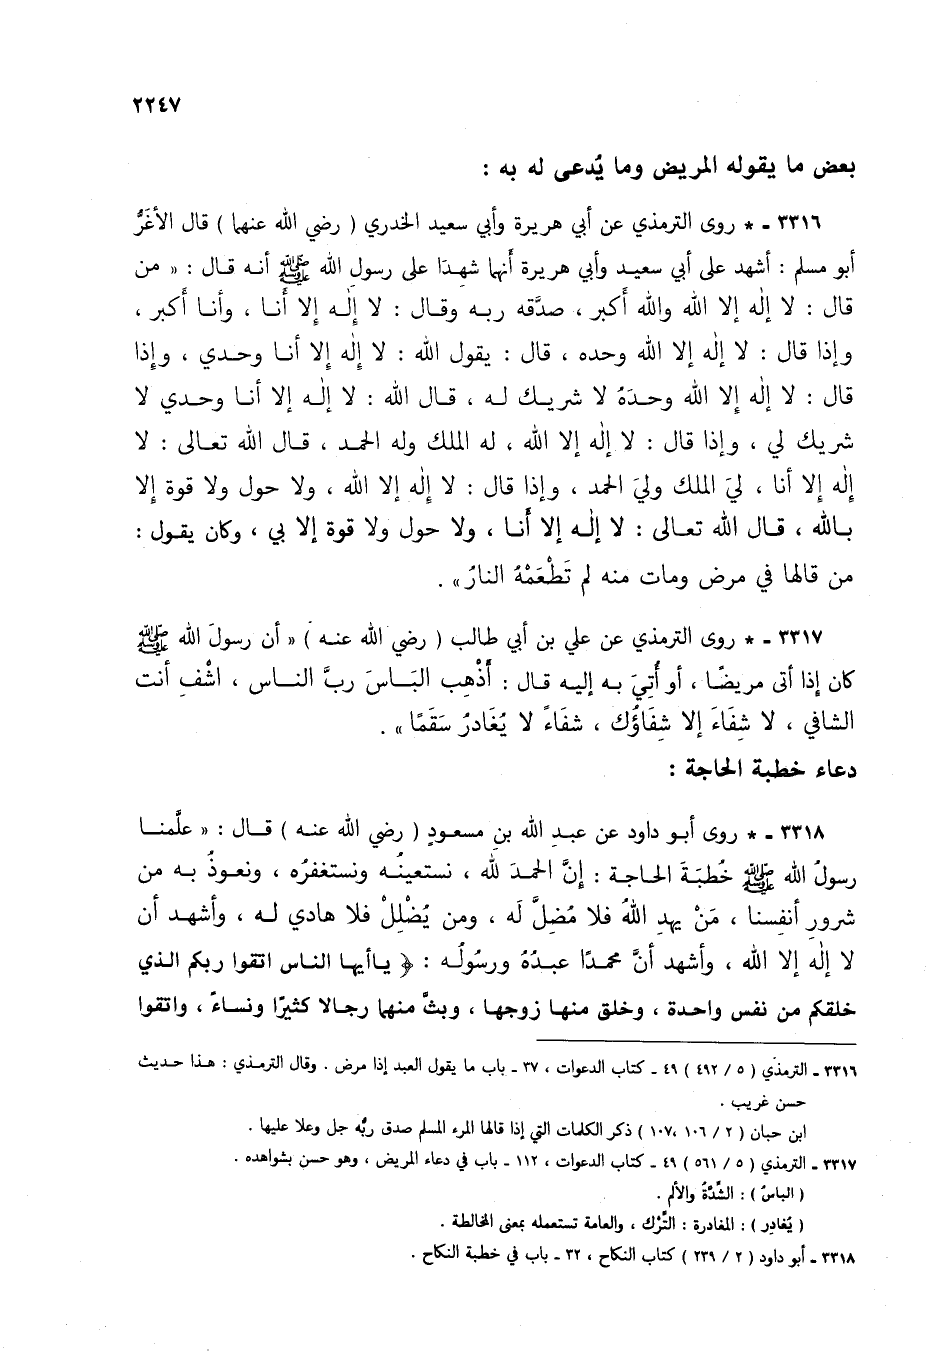 ٢٢٤٧
بعض ما يقوله المريض وما يُدعى له به :
٣٣١٦ - * روى الترمذي عن أبي هريرة وأبي سعيد الخدري ( رضي الله عنهما ) قال الأغَرُّ
أبو مسلم : أشهد على أبي سعيد وأبي هريرة أنهما شهدَا على رسول الله ﷺ أنه قال : « من
قال : لا إلٰه إلا الله والله أكبر ، صدَّقه ربه وقال : لا إلٰه إلا أَنا ، وأنا أكبر ،
وإذا قال : لا إلٰه إلا الله وحده ، قال : يقول الله : لا إلٰه إلا أنا وحدي ، وإذا
قال : لا إلٰه إلا الله وحدَهُ لا شريك له ، قال الله : لا إلٰه إلا أنا وحدي لا
شريك لي ، وإذا قال : لا إلٰه إلا الله ، له الملك وله الحمد ، قال الله تعالى : لا
إلٰه إلا أنا ، ليَ الملك وليَ الحمد ، وإذا قال : لا إلٰه إلا الله ، ولا حول ولا قوة إلا
بالله ، قال الله تعالى : لا إلٰه إلا أَنا ، ولا حول ولا قوة إلا بي ، وكان يقول :
من قالها في مرض ومات منه لم تَطْعَمْهُ النارُ» .
٣٣١٧ - * روى الترمذي عن علي بن أبي طالب ( رضي الله عنه ) « أن رسولَ الله ﷺ
كان إذا أتى مريضًا ، أو أُتيَ به إليه قال : أَذْهِب البَاسَ ربَّ الناس ، اشْفِ أنت
الشافي ، لا شِفَاءَ إلا شِفَاؤُك ، شفَاءً لا يُغَادرُ سَقَمًا» .
دعاء خطبة الحاجة :
٣٣١٨ - * روى أبو داود عن عبدِ الله بنِ مسعودٍ ( رضي الله عنه ) قال : « علَّمنا
رسولُ الله ﷺ خُطبَةَ الحاجة : إنَّ الحمدَ لله ، نستعينُه ونستغفرُه ، ونعوذُ به من
شرورِ أنفسنا ، مَنْ يهدِ اللهُ فلا مُضلَّ لَه ، ومن يُضْلِلْ فلا هادي له ، وأشهد أن
لا إلٰه إلا الله ، وأشهد أنَّ محمدًا عبدُهُ ورسُولُه : ﴿ ياأيها الناس اتقوا ربكم الذي
خلقكم من نفس واحدة ، وخلق منها زوجها ، وبثَّ منهما رجالا كثيرًا ونساءً ، واتقوا
٣٣١٦ - الترمذي ( ٥ / ٤٩٢ ) ٤٩ - كتاب الدعوات ، ٣٧ - باب ما يقول العبد إذا مرض . وقال الترمذي : هذا حديث
حسن غريب .
ابن حبان ( ٢ / ١٠٦ ،١٠٧ ) ذكر الكلمات التي إذا قالها المرء المسلم صدق ربُّه جل وعلا عليها .
٣٣١٧ - الترمذي ( ٥ / ٥٦١ ) ٤٩ - كتاب الدعوات ، ١١٢ - باب في دعاء المريض ، وهو حسن بشواهده .
( الباسُ ) : الشِّدَّةُ والألم .
( يُغادِر ) : المغادرة : التَّرْك ، والعامة تستعمله بمعنى المخالطة .
٣٣١٨ - أبو داود ( ٢ / ٢٣٩ ) كتاب النكاح ، ٣٢ - باب في خطبة النكاح .